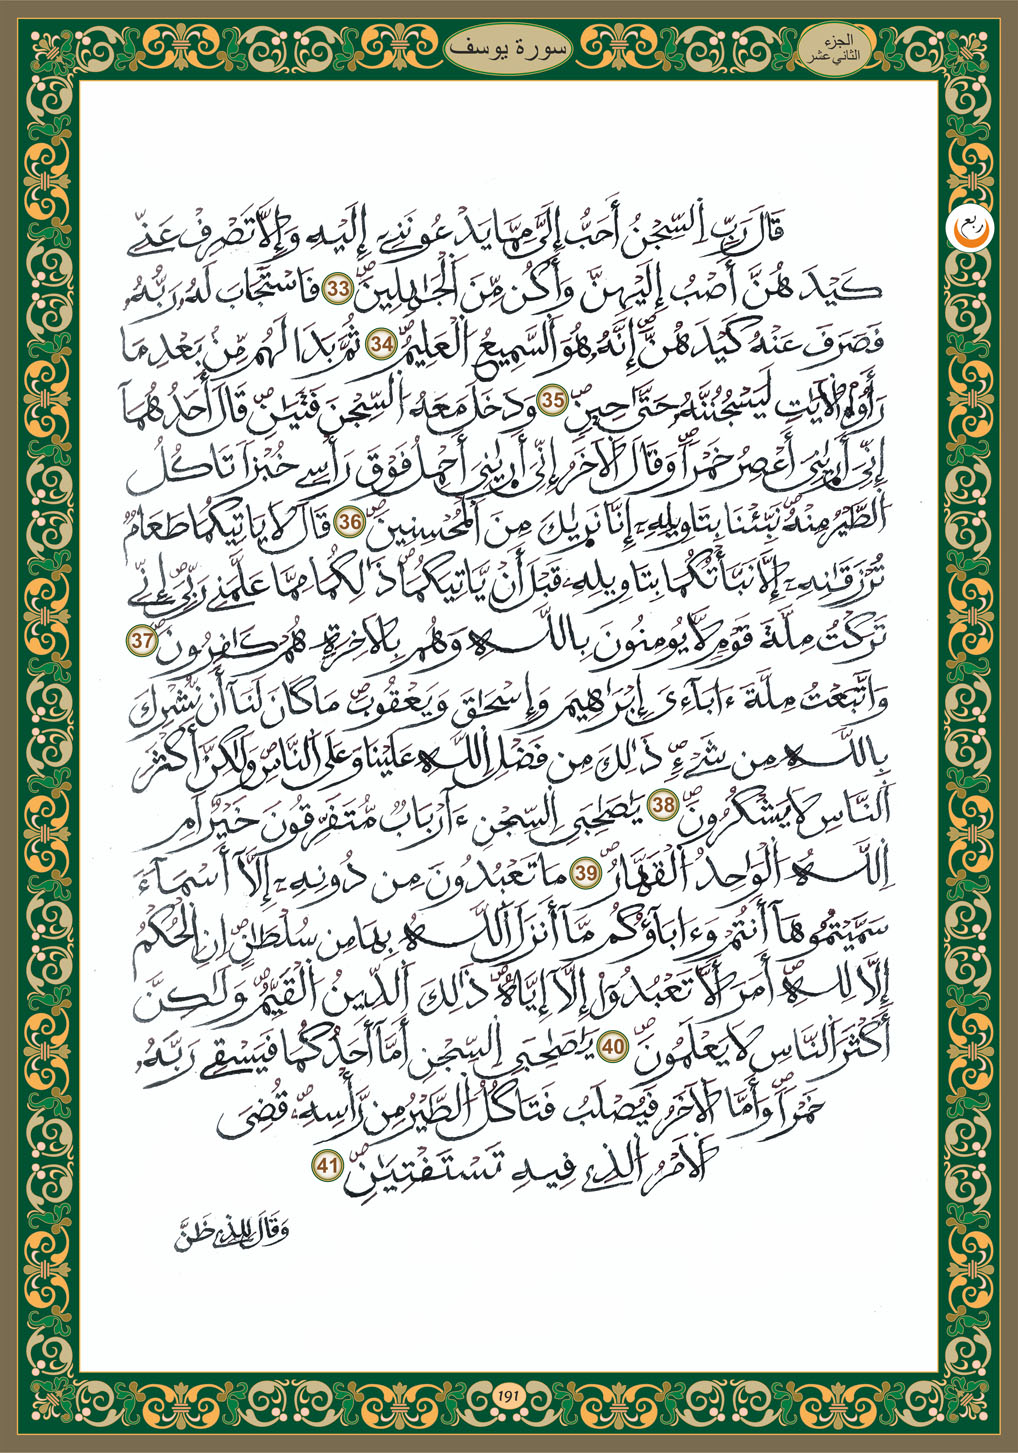 الجزء
الثاني عشر
سورة يوسف
ربع
قَالَ رَبِّ اِ۬لسِّجْنُ أَحَبُّ إِلَيَّ مِمَّا يَدْعُونَنِے إِلَيْهِ وَإِلَّا تَصْرِفْ عَنِّے
كَيْدَهُنَّ أَصْبُ إِلَيْهِنَّ وَأَكُن مِّنَ اَ۬لْجَٰهِلِينَۖ 33 فَاسْتَجَابَ لَهُۥ رَبُّهُۥ
فَصَرَفَ عَنْهُ كَيْدَهُنَّۖ إِنَّهُۥ هُوَ اَ۬لسَّمِيعُ اُ۬لْعَلِيمُۖ 34 ثُمَّ بَدَا لَهُم مِّنۢ بَعْدِ مَا
رَأَوُاْ اُ۬لَايَٰتِ لَيَسْجُنُنَّهُۥ حَتَّىٰ حِينٖۖ 35 وَدَخَلَ مَعَهُ اُ۬لسِّجْنَ فَتَيَٰنِۖ قَالَ أَحَدُهُمَآ
إِنِّيَ أَر۪يٰنِيَ أَعْصِرُ خَمْراٗۖ وَقَالَ اَ۬لَاخَرُ إِنِّيَ أَر۪يٰنِيَ أَحْمِلُ فَوْقَ رَأْسِے خُبْزاٗ تَاكُلُ
اُ۬لطَّيْرُ مِنْهُۖ نَبِّئْنَا بِتَاوِيلِهِۦٓۖ إِنَّا نَر۪يٰكَ مِنَ اَ۬لْمُحْسِنِينَۖ 36 قَالَ لَا يَاتِيكُمَا طَعَامٞ
تُرْزَقَٰنِهِۦٓ إِلَّا نَبَّأْتُكُمَا بِتَاوِيلِهِۦ قَبْلَ أَنْ يَّاتِيَكُمَاۖ ذَٰلِكُمَا مِمَّا عَلَّمَنِے رَبِّيَۖ إِنِّے
تَرَكْتُ مِلَّةَ قَوْمٖ لَّا يُومِنُونَ بِاللَّهِ وَهُم بِالَاخِرَةِ هُمْ كَٰفِرُونَۖ 37
وَاتَّبَعْتُ مِلَّةَ ءَابَآءِيَ إِبْرَٰهِيمَ وَإِسْحَٰقَ وَيَعْقُوبَۖ مَا كَانَ لَنَآ أَن نُّشْرِكَ
بِاللَّهِ مِن شَےْءٖۖ ذَٰلِكَ مِن فَضْلِ اِ۬للَّهِ عَلَيْنَا وَعَلَى اَ۬لنَّاسِۖ وَلَٰكِنَّ أَكْثَرَ
اَ۬لنَّاسِ لَا يَشْكُرُونَۖ 38 يَٰصَٰحِبَيِ اِ۬لسِّجْنِ ءَآرْبَابٞ مُّتَفَرِّقُونَ خَيْرٌ اَمِ
اِ۬للَّهُ اُ۬لْوَٰحِدُ اُ۬لْقَهَّارُۖ 39 مَا تَعْبُدُونَ مِن دُونِهِۦٓ إِلَّآ أَسْمَآءٗ
سَمَّيْتُمُوهَآ أَنتُمْ وَءَابَآؤُكُم مَّآ أَنزَلَ اَ۬للَّهُ بِهَا مِن سُلْطَٰنٍۖ اِنِ اِ۬لْحُكْمُ
إِلَّا لِلهِۖ أَمَرَ أَلَّا تَعْبُدُوٓاْ إِلَّآ إِيَّاهُۖ ذَٰلِكَ اَ۬لدِّينُ اُ۬لْقَيِّمُۖ وَلَٰكِنَّ
أَكْثَرَ اَ۬لنَّاسِ لَا يَعْلَمُونَۖ 40 يَٰصَٰحِبَيِ اِ۬لسِّجْنِ أَمَّآ أَحَدُكُمَا فَيَسْقِے رَبَّهُۥ
خَمْراٗۖ وَأَمَّا اَ۬لَاخَرُ فَيُصْلَبُ فَتَاكُلُ اُ۬لطَّيْرُ مِن رَّأْسِهِۦۖ قُضِيَ
اَ۬لَامْرُ اُ۬لذِے فِيهِ تَسْتَفْتِيَٰنِۖ 41
وَقَالَ لِلذِے ظَنَّ
191